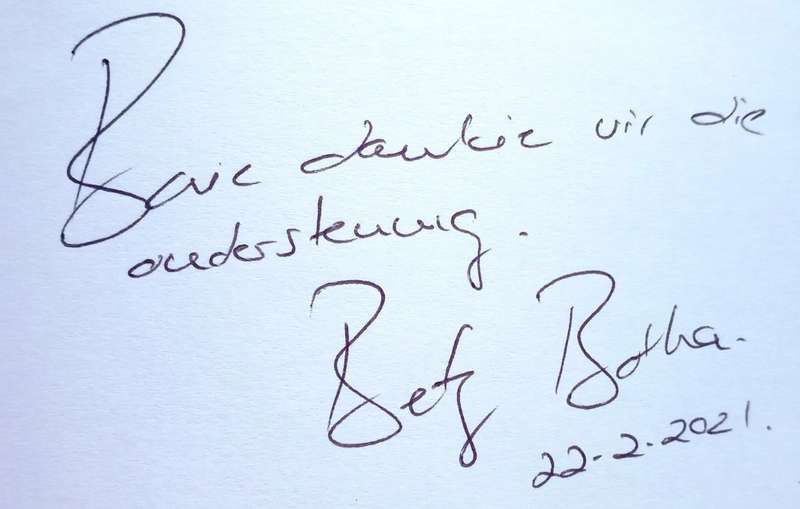 Baie dankie vir die
ondersteuning.
Betz Botha.
22-2-2021.